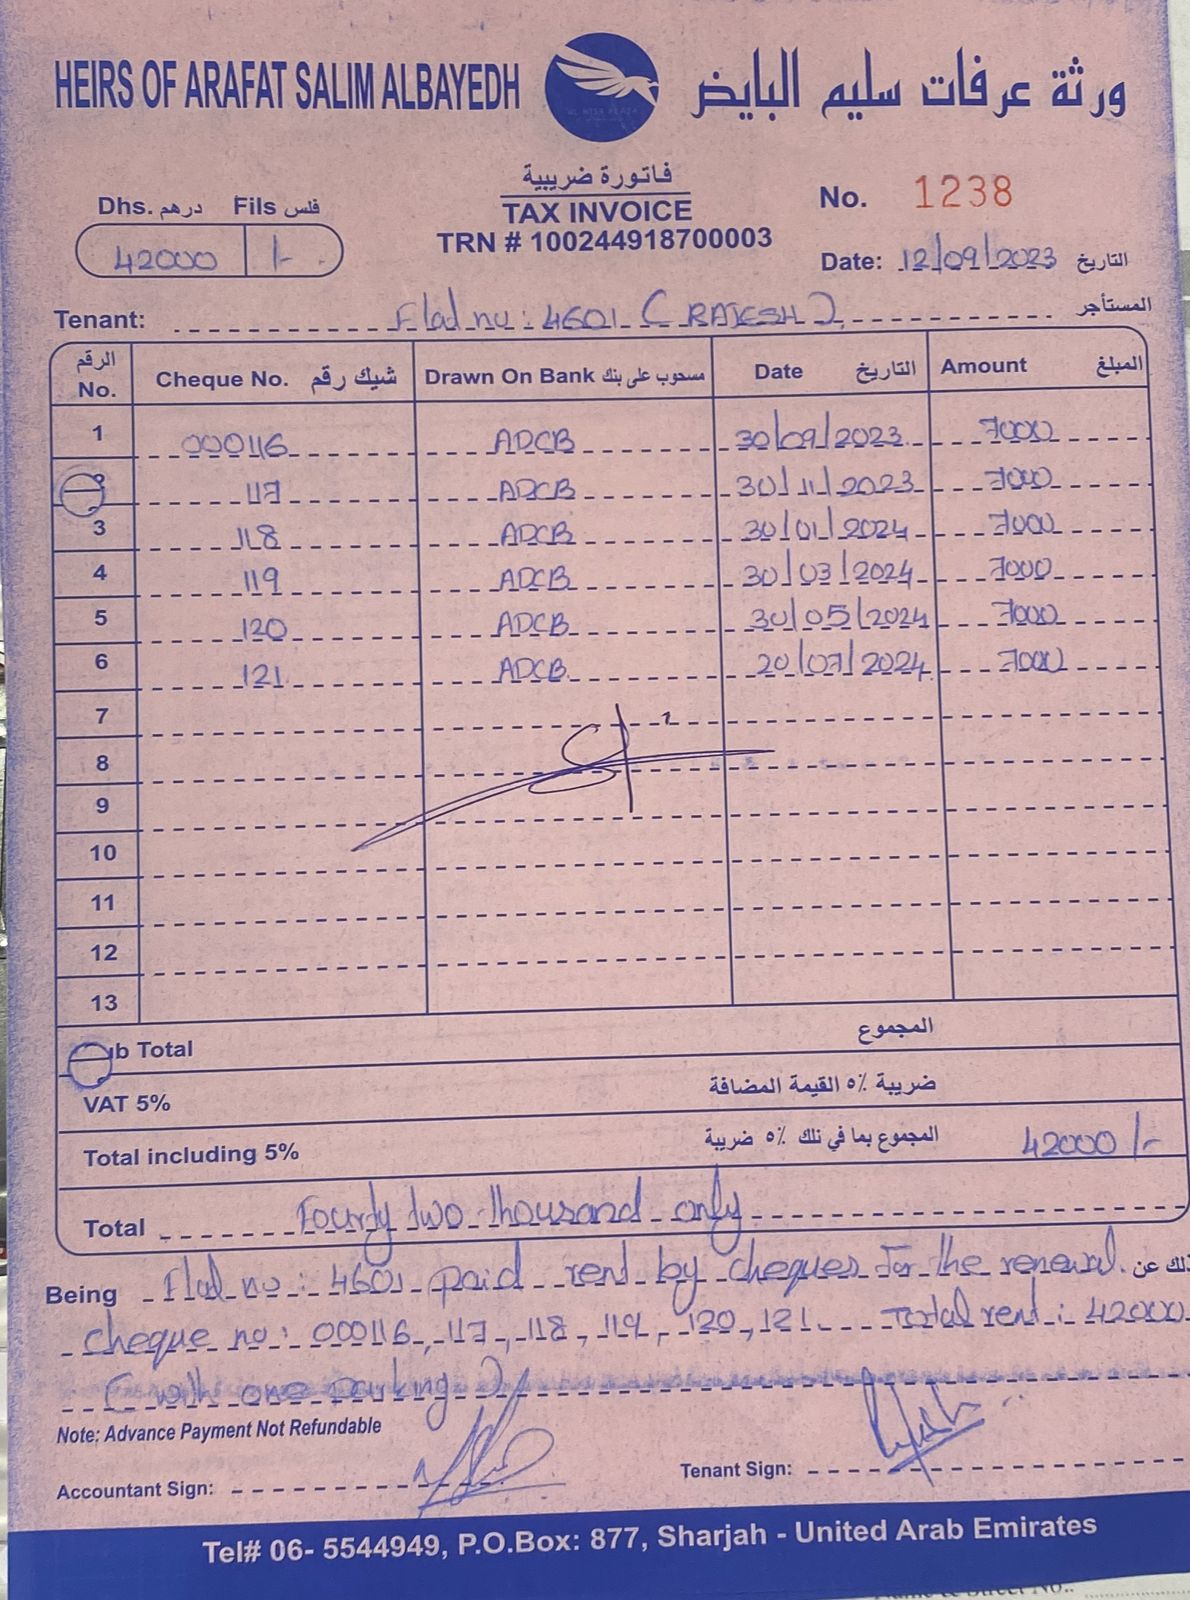 HEIRS OF ARAFAT SALIM ALBAYEDH ورثة عرفات سليم البايض
فاتورة ضريبية
TAX INVOICE
TRN # 100244918700003
Dhs. درهم Fils فلس
42000 /-
No. 1238
Date: 12/09/2023 التاريخ
Tenant: Flat no : 4601 ( RAJESH ) المستأجر
الرقم No. Cheque No. شيك رقم Drawn On Bank مسحوب على بنك Date التاريخ Amount المبلغ
1 000116 ADCB 30/09/2023 7000
2 117 ADCB 30/11/2023 7000
3 118 ADCB 30/01/2024 7000
4 119 ADCB 30/03/2024 7000
5 120 ADCB 30/05/2024 7000
6 121 ADCB 20/07/2024 7000
7
8
9
10
11
12
13
ub Total المجموع
VAT 5% ضريبة ٥٪ القيمة المضافة
Total including 5% المجموع بما في ذلك ٥٪ ضريبة 42000/-
Total Fourty two thousand only
Being Flat no : 4601 paid rent by cheques for the renewal. ذلك عن
cheque no : 000116, 117, 118, 119, 120, 121. Total rent : 42000
( with one parking )
Note: Advance Payment Not Refundable
Accountant Sign: Tenant Sign:
Tel# 06- 5544949, P.O.Box: 877, Sharjah - United Arab Emirates